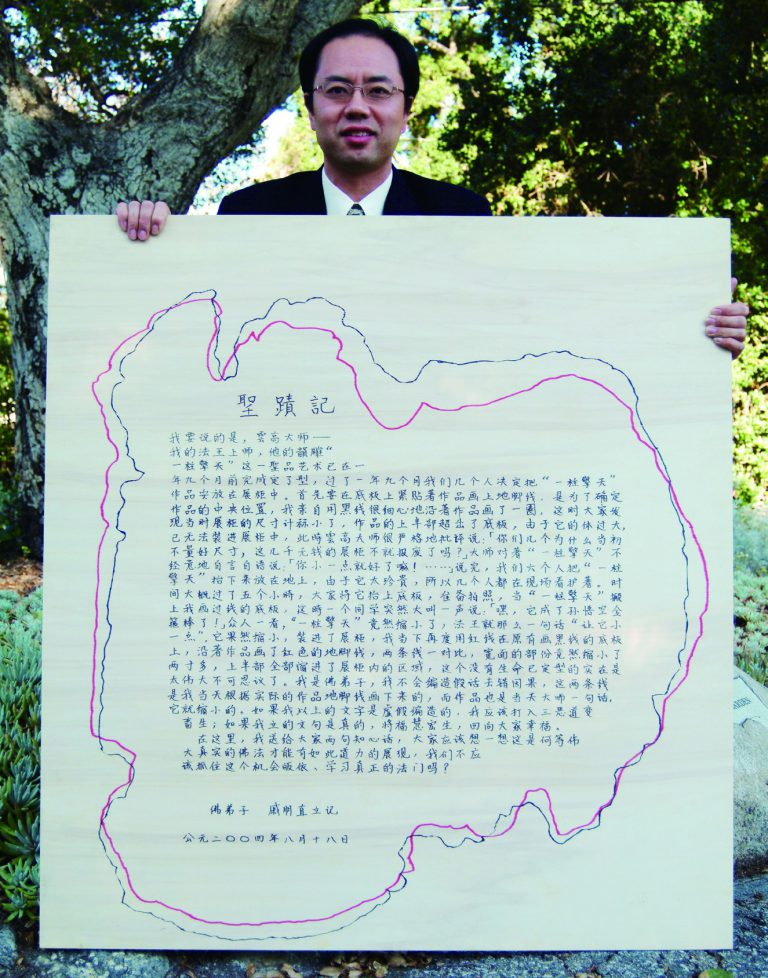 聖蹟記
我要说的是，雲高大师——
我的法王上师，他的韻雕“
一柱擎天”这一聖品艺术已在一
年九个月前完成定了型，过了一年九个月我们几个人决定把“一柱擎天”
作品安放在展柜中。首先要在底板上紧贴著作品画上地脚线，是为了确定
作品的中央位置，我亲自用黑线很细心地沿着作品画了一圈，这时大家发
现当时展柜的尺寸计标小了，作品的上半部超出了底板，由于它的体过大，
已无法裝进展柜中，此時雲高大师很严格地批评说：「你们几个为什么当初
不量好尺寸，这几千元我的展柜不就报废了吗？」大师对著“一柱擎天”不
经意地自言自语说：「你小一点就好了嘛！……」说完，我们六个人把“一柱
擎天”抬下来放在地上，由于它太珍贵，所以几个人都在现场看护著。时
间大概过了五个小時，大家将它抬上底板，准备拍照，当“一柱擎天”搬
上我画过线的底板，这時一个同学突然大叫一声说：「嘿，它成了孙悟空金
箍棒了！」众人一看，“一柱擎天”竟然缩小了，法王就那么一句话“让它小
一点”，它果然缩小，裝进了展柜，我当下再度用红线在原有画黑线的底板
上，沿著作品画了红色的地脚线，两条线一对比，宽面的部份竟然缩小了
两寸多，上半部全部缩进了展柜内的区域，这个没有生命已定型的实在是
太伟大不可思议了。我是佛弟子，我不会编造假话去错因果，这两条线
是我当天根据实际的作品地脚线画下来的，而作品也是当天大师一句话，
它就缩小的。如果我以上的文字是虚假编造的，我应该打入三恶道变
畜生；如果我立的文句是真的，将福慧宏生，回向大家幸福。
在这里，我送给大家两句知心话，大家应该想一想这是何等伟
大真实的佛法才能有如此道力的展现，我们不应
该抓住这个机会皈依、学习真正的法门吗？
佛弟子 戚朋直立记
公元二〇〇四年八月十八日